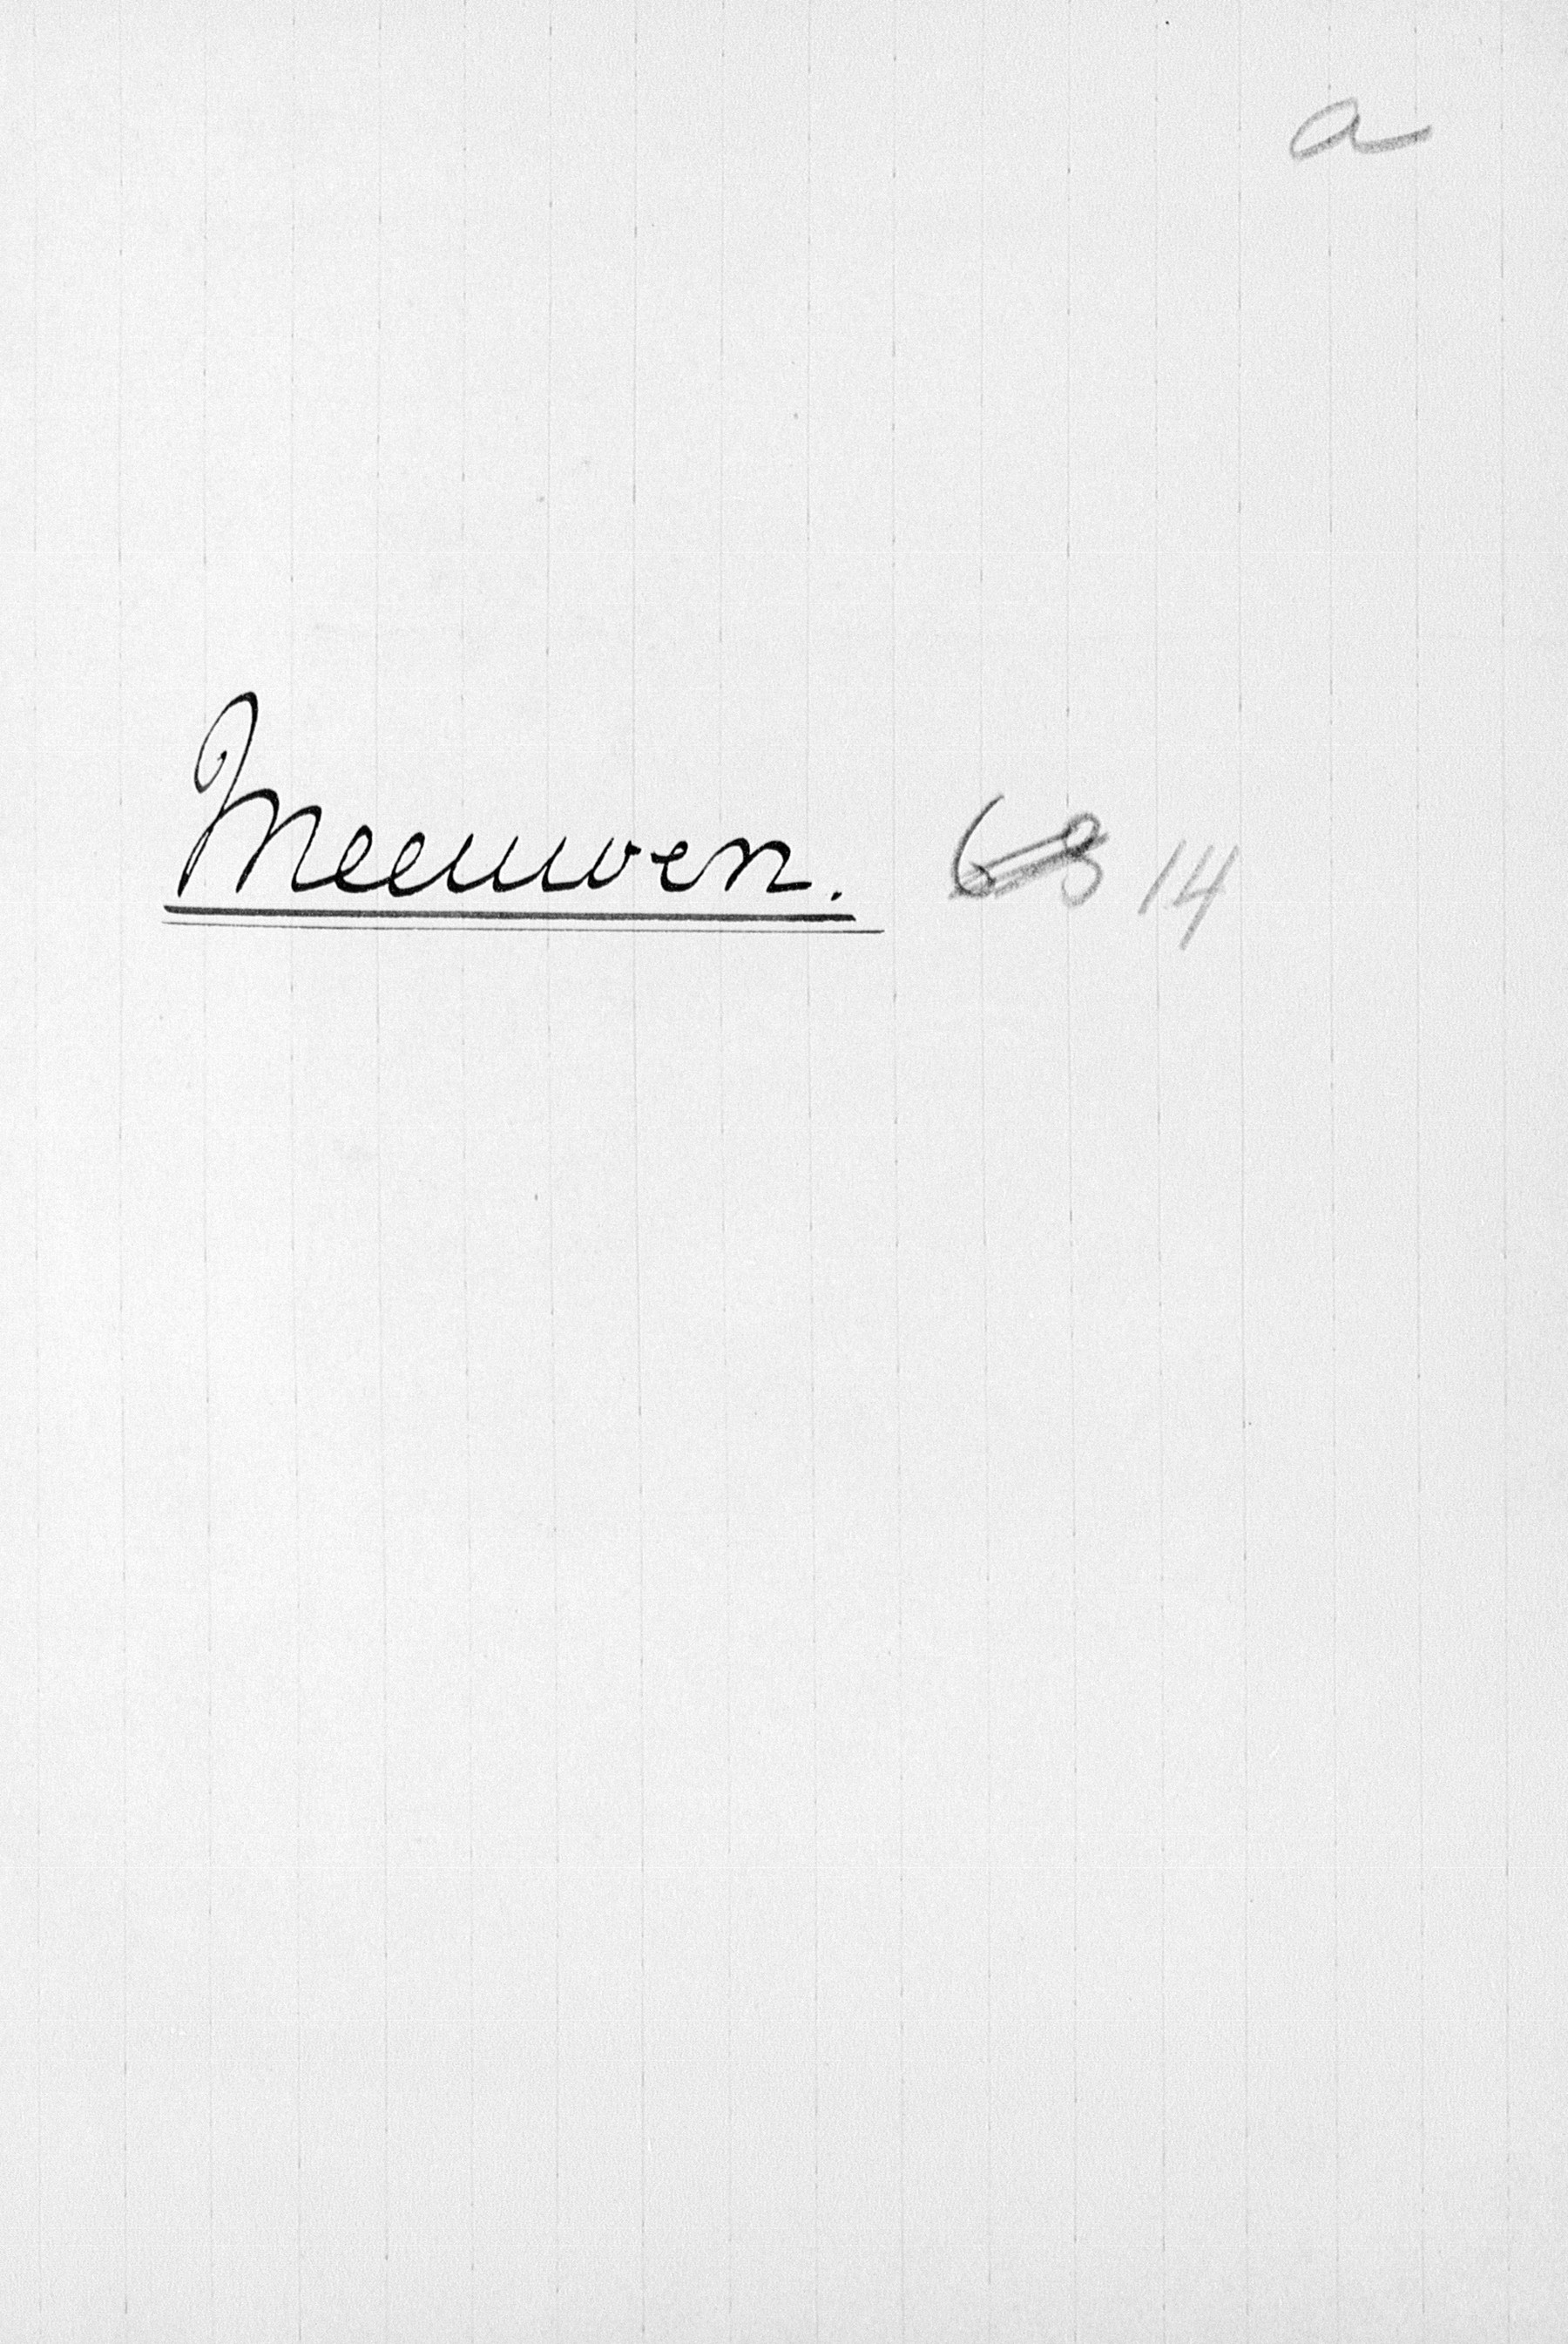 a
Meeuwen. 68 14